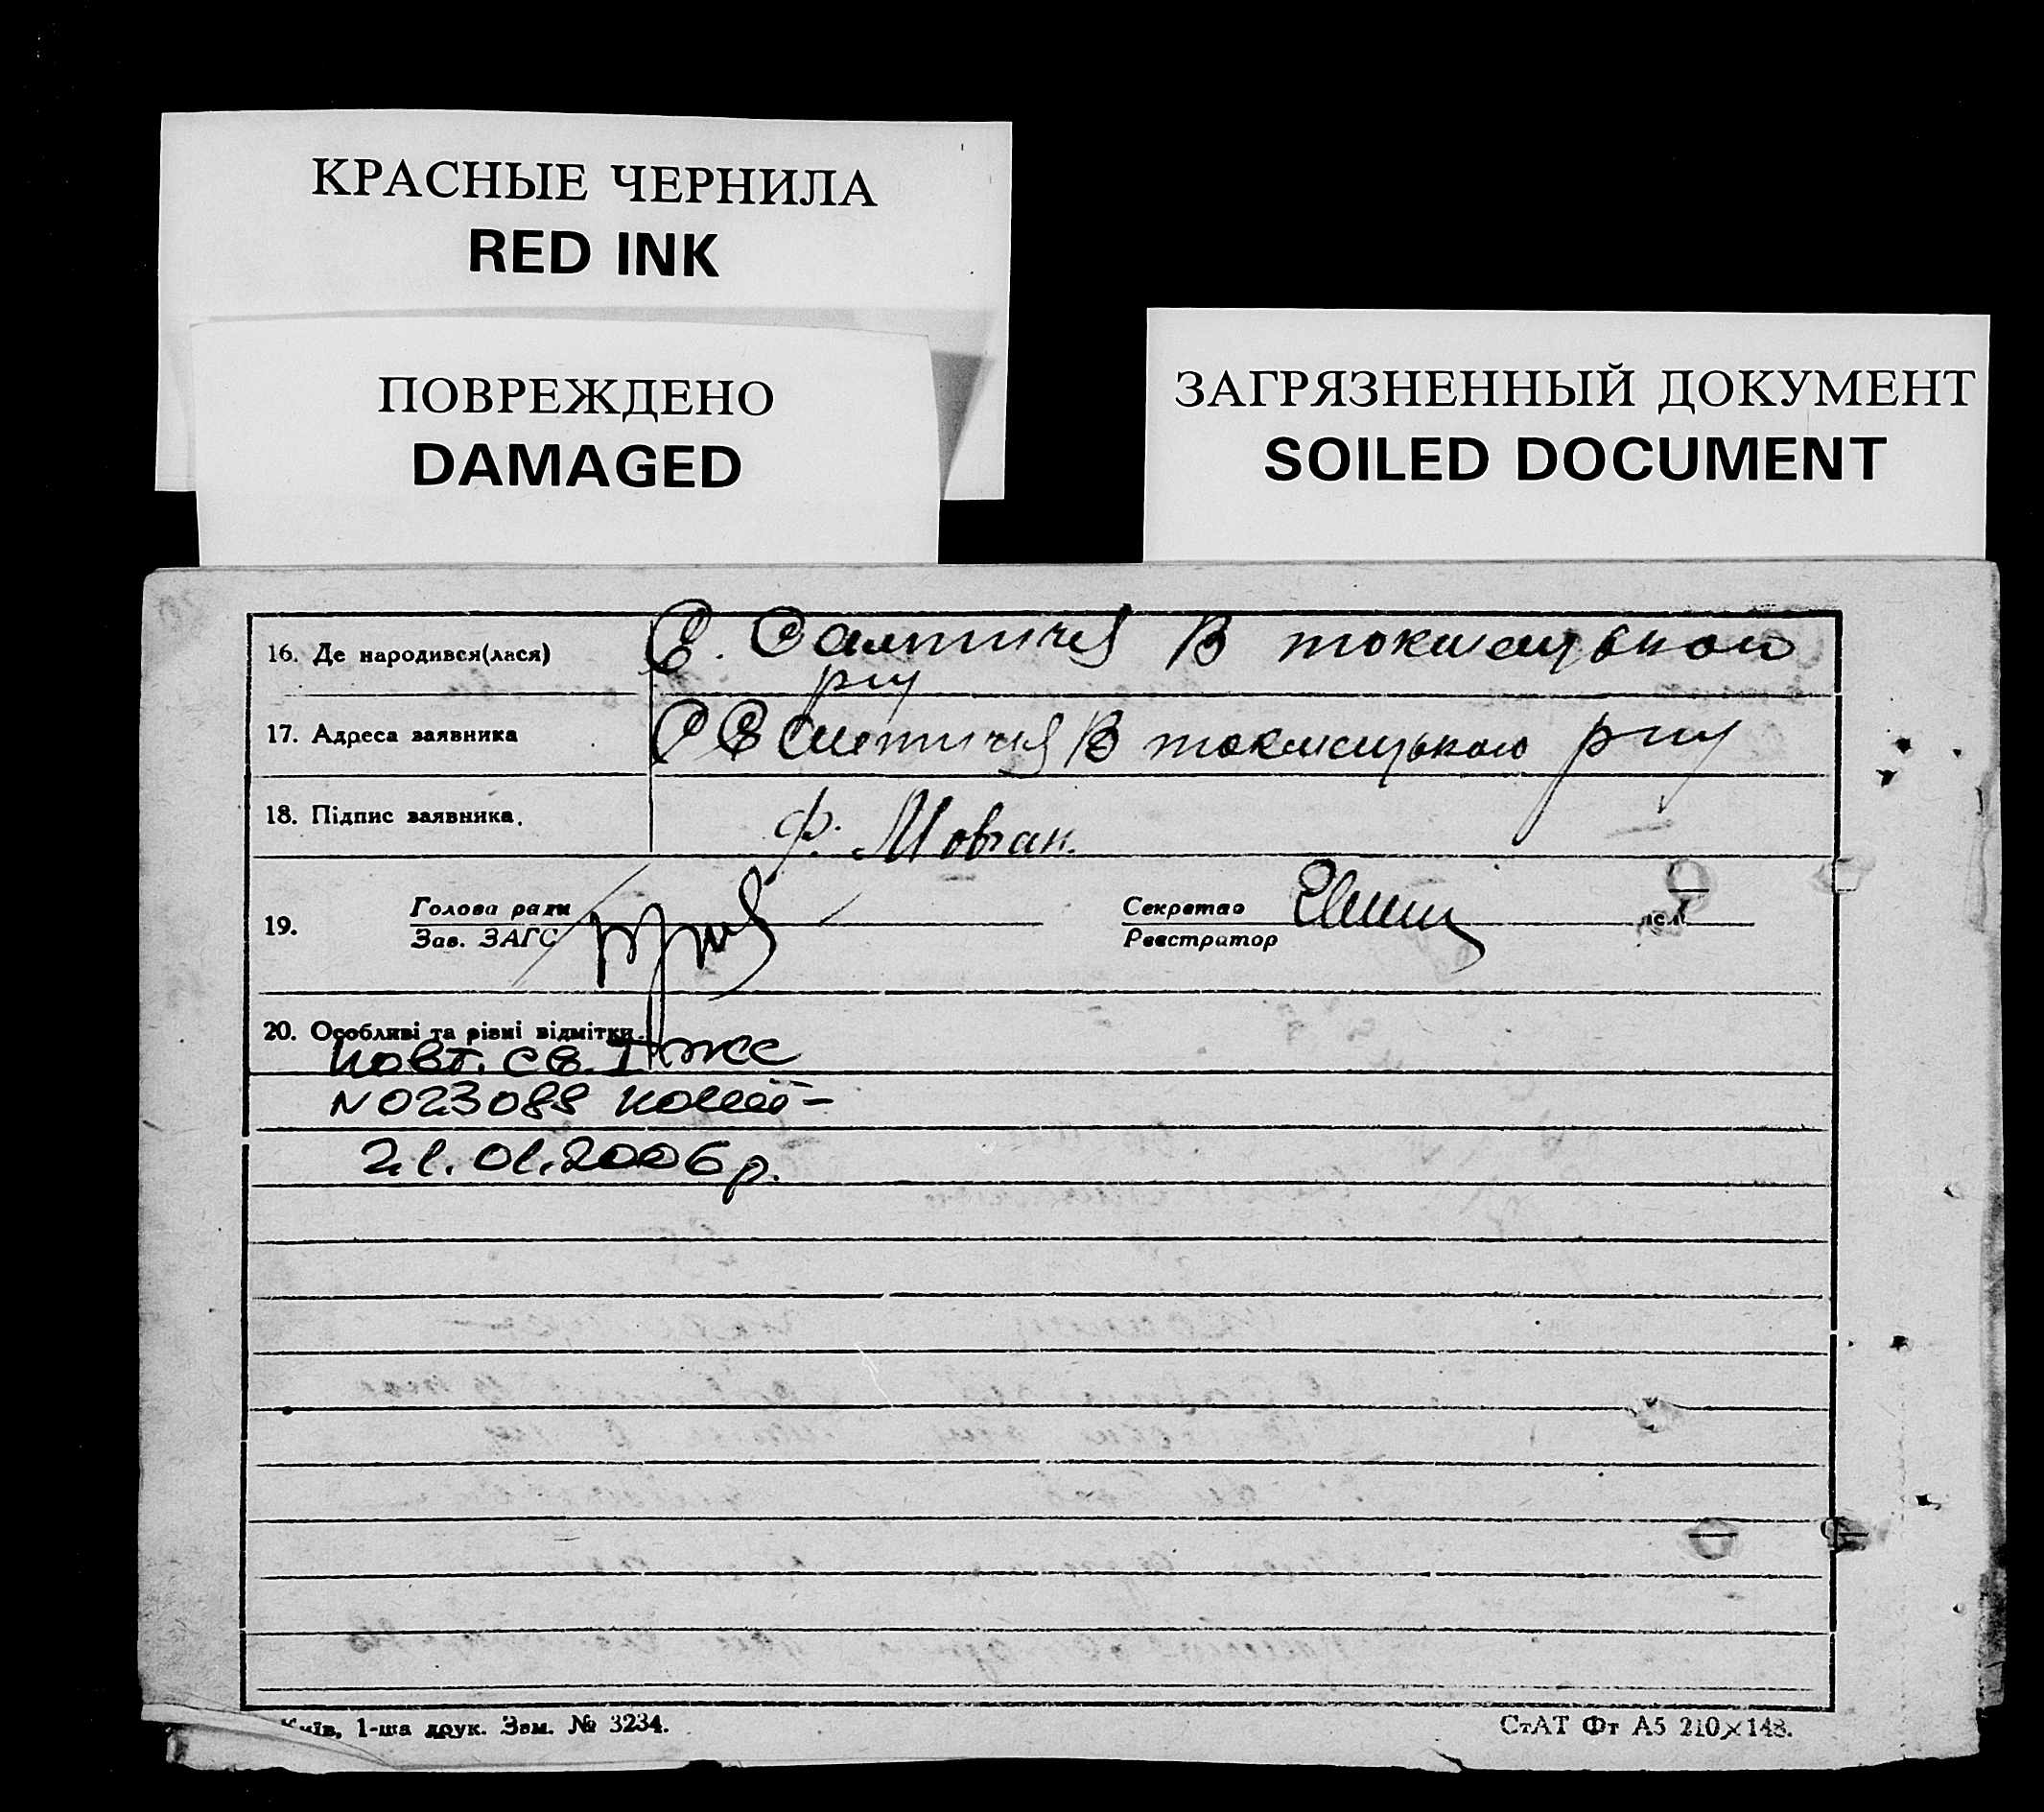 КРАСНЫЕ ЧЕРНИЛА
RED INK
ПОВРЕЖДЕНО
DAMAGED
ЗАГРЯЗНЕННЫЙ ДОКУМЕНТ
SOILED DOCUMENT
16. Де народився(лася) С. Салтичія В токмацького
р-ну
17. Адреса заявника В токмацького р-ну
18. Підпис заявника. Ф. Мовчан.
19. Голова ради Секретар
Зав. ЗАГС Реєстратор
20. Особливі та різні відмітки.
повт. св. І-жс
N 023088
21.01.2006р.
Київ, 1-ша друк. Зам. № 3234. СтАТ Фт А5 210×148.